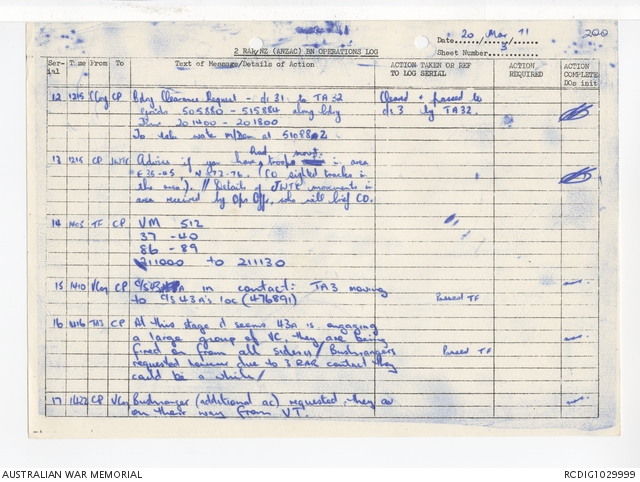 Date 20 Mar 71
200
2 RAR/NZ (ANZAC) BN OPERATIONS LOG
Sheet Number 3
Ser-ial Time From To Text of Message/Details of Action ACTION TAKEN OR REF TO LOG SERIAL ACTION REQUIRED ACTION COMPLETE DOs init
12 1215 CP Bdry Clearance Request - c/s 31 to TA 32 Cleared & passed to
505880 - 515884 along bdry c/s 3 by TA32.
Time 201400 - 201800
To take water
13 1215 CP Advise if you have had troops movt. in area
E 35-05 N 72-76. (CO sighted tracks in
the area). // Details of JWTC movements in
area received by Ops Offr, who will brief CO.
14 1405 TF CP VM 512
37 - 40
86 - 89
211000 to 211130
15 1410 VCoy CP C/S 43A in contact: TA3 moving
to C/S 43A's loc (476891) Passed TF
16 1416 TA3 CP At this stage it seems 43A is engaging
a large group of VC, they are being
fired on from all sides // Bushrangers Passed TF
requested however due to 3 RAR contact they
could be a while /
17 1422 CP VCoy Bushranger (additional ac) requested, they are
on their way from VT.
AUSTRALIAN WAR MEMORIAL
RCDIG1029999